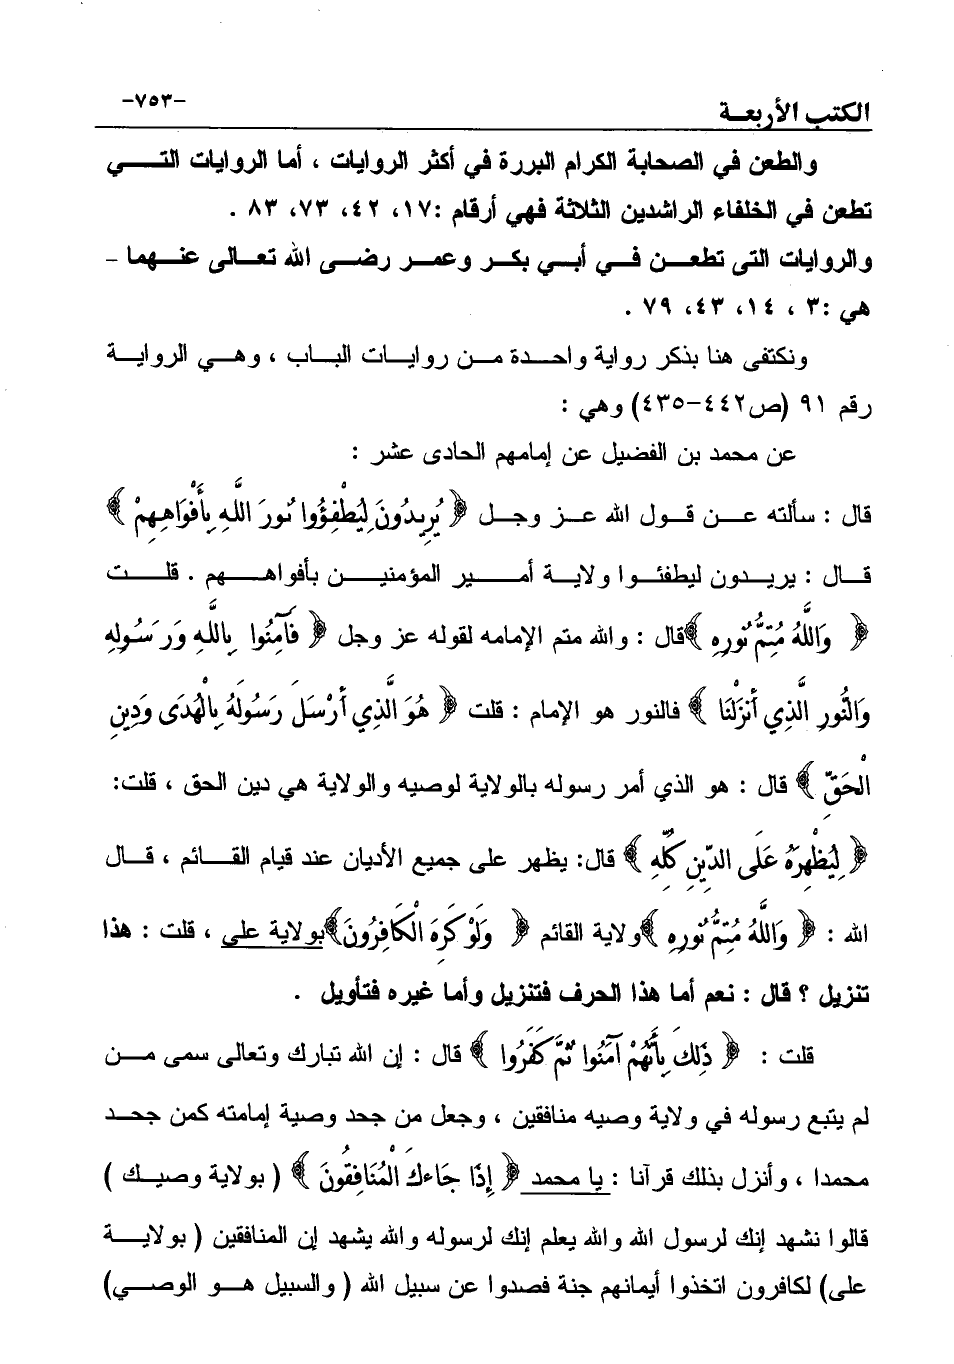 الكتب الأربعة
-٧٥٣-
والطعن في الصحابة الكرام البررة في أكثر الروايات ، أما الروايات التي
تطعن في الخلفاء الراشدين الثلاثة فهي أرقام :١٧، ٤٢، ٧٣، ٨٣ .
والروايات التى تطعن في أبي بكر وعمر رضى الله تعالى عنهما –
هي :٣ ، ١٤، ٤٣، ٧٩ .
ونكتفى هنا بذكر رواية واحدة من روايات الباب ، وهي الرواية
رقم ٩١ (ص٤٤٢-٤٣٥) وهي :
عن محمد بن الفضيل عن إمامهم الحادى عشر :
قال : سألته عن قول الله عز وجل ﴿ يُرِيدُونَ لِيُطْفِؤُوا نُورَ اللَّهِ بِأَفْوَاهِهِمْ ﴾
قال : يريدون ليطفئوا ولاية أمير المؤمنين بأفواههم . قلت
﴿ وَاللَّهُ مُتِمُّ نُورِهِ ﴾قال : والله متم الإمامه لقوله عز وجل ﴿ فَآمِنُوا بِاللَّهِ وَرَسُولِهِ
وَالنُّورِ الَّذِي أَنْزَلْنَا ﴾ فالنور هو الإمام : قلت ﴿ هُوَ الَّذِي أَرْسَلَ رَسُولَهُ بِالْهُدَى وَدِينِ
الْحَقِّ ﴾ قال : هو الذي أمر رسوله بالولاية لوصيه والولاية هي دين الحق ، قلت:
﴿ لِيُظْهِرَهُ عَلَى الدِّينِ كُلِّهِ ﴾ قال: يظهر على جميع الأديان عند قيام القائم ، قال
الله : ﴿ وَاللَّهُ مُتِمُّ نُورِهِ ﴾ولاية القائم ﴿ وَلَوْ كَرِهَ الْكَافِرُونَ﴾بولاية على ، قلت : هذا
تنزيل ؟ قال : نعم أما هذا الحرف فتنزيل وأما غيره فتأويل .
قلت : ﴿ ذَلِكَ بِأَنَّهُمْ آمَنُوا ثُمَّ كَفَرُوا ﴾ قال : إن الله تبارك وتعالى سمى من
لم يتبع رسوله في ولاية وصيه منافقين ، وجعل من جحد وصية إمامته كمن جحد
محمدا ، وأنزل بذلك قرآنا : يا محمد ﴿ إِذَا جَاءكَ الْمُنَافِقُونَ ﴾ ( بولاية وصيك )
قالوا نشهد إنك لرسول الله والله يعلم إنك لرسوله والله يشهد إن المنافقين ( بولاية
على) لكافرون اتخذوا أيمانهم جنة فصدوا عن سبيل الله ( والسبيل هو الوصي)